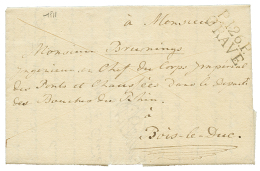 à Monsieur
Monsieur Brunings
Ingénieur en Chef du Corps Impérial
des Ponts et Chaussées dans le Départ
des Bouches du Rhin
à
Bois-le-Duc.
GRAVE